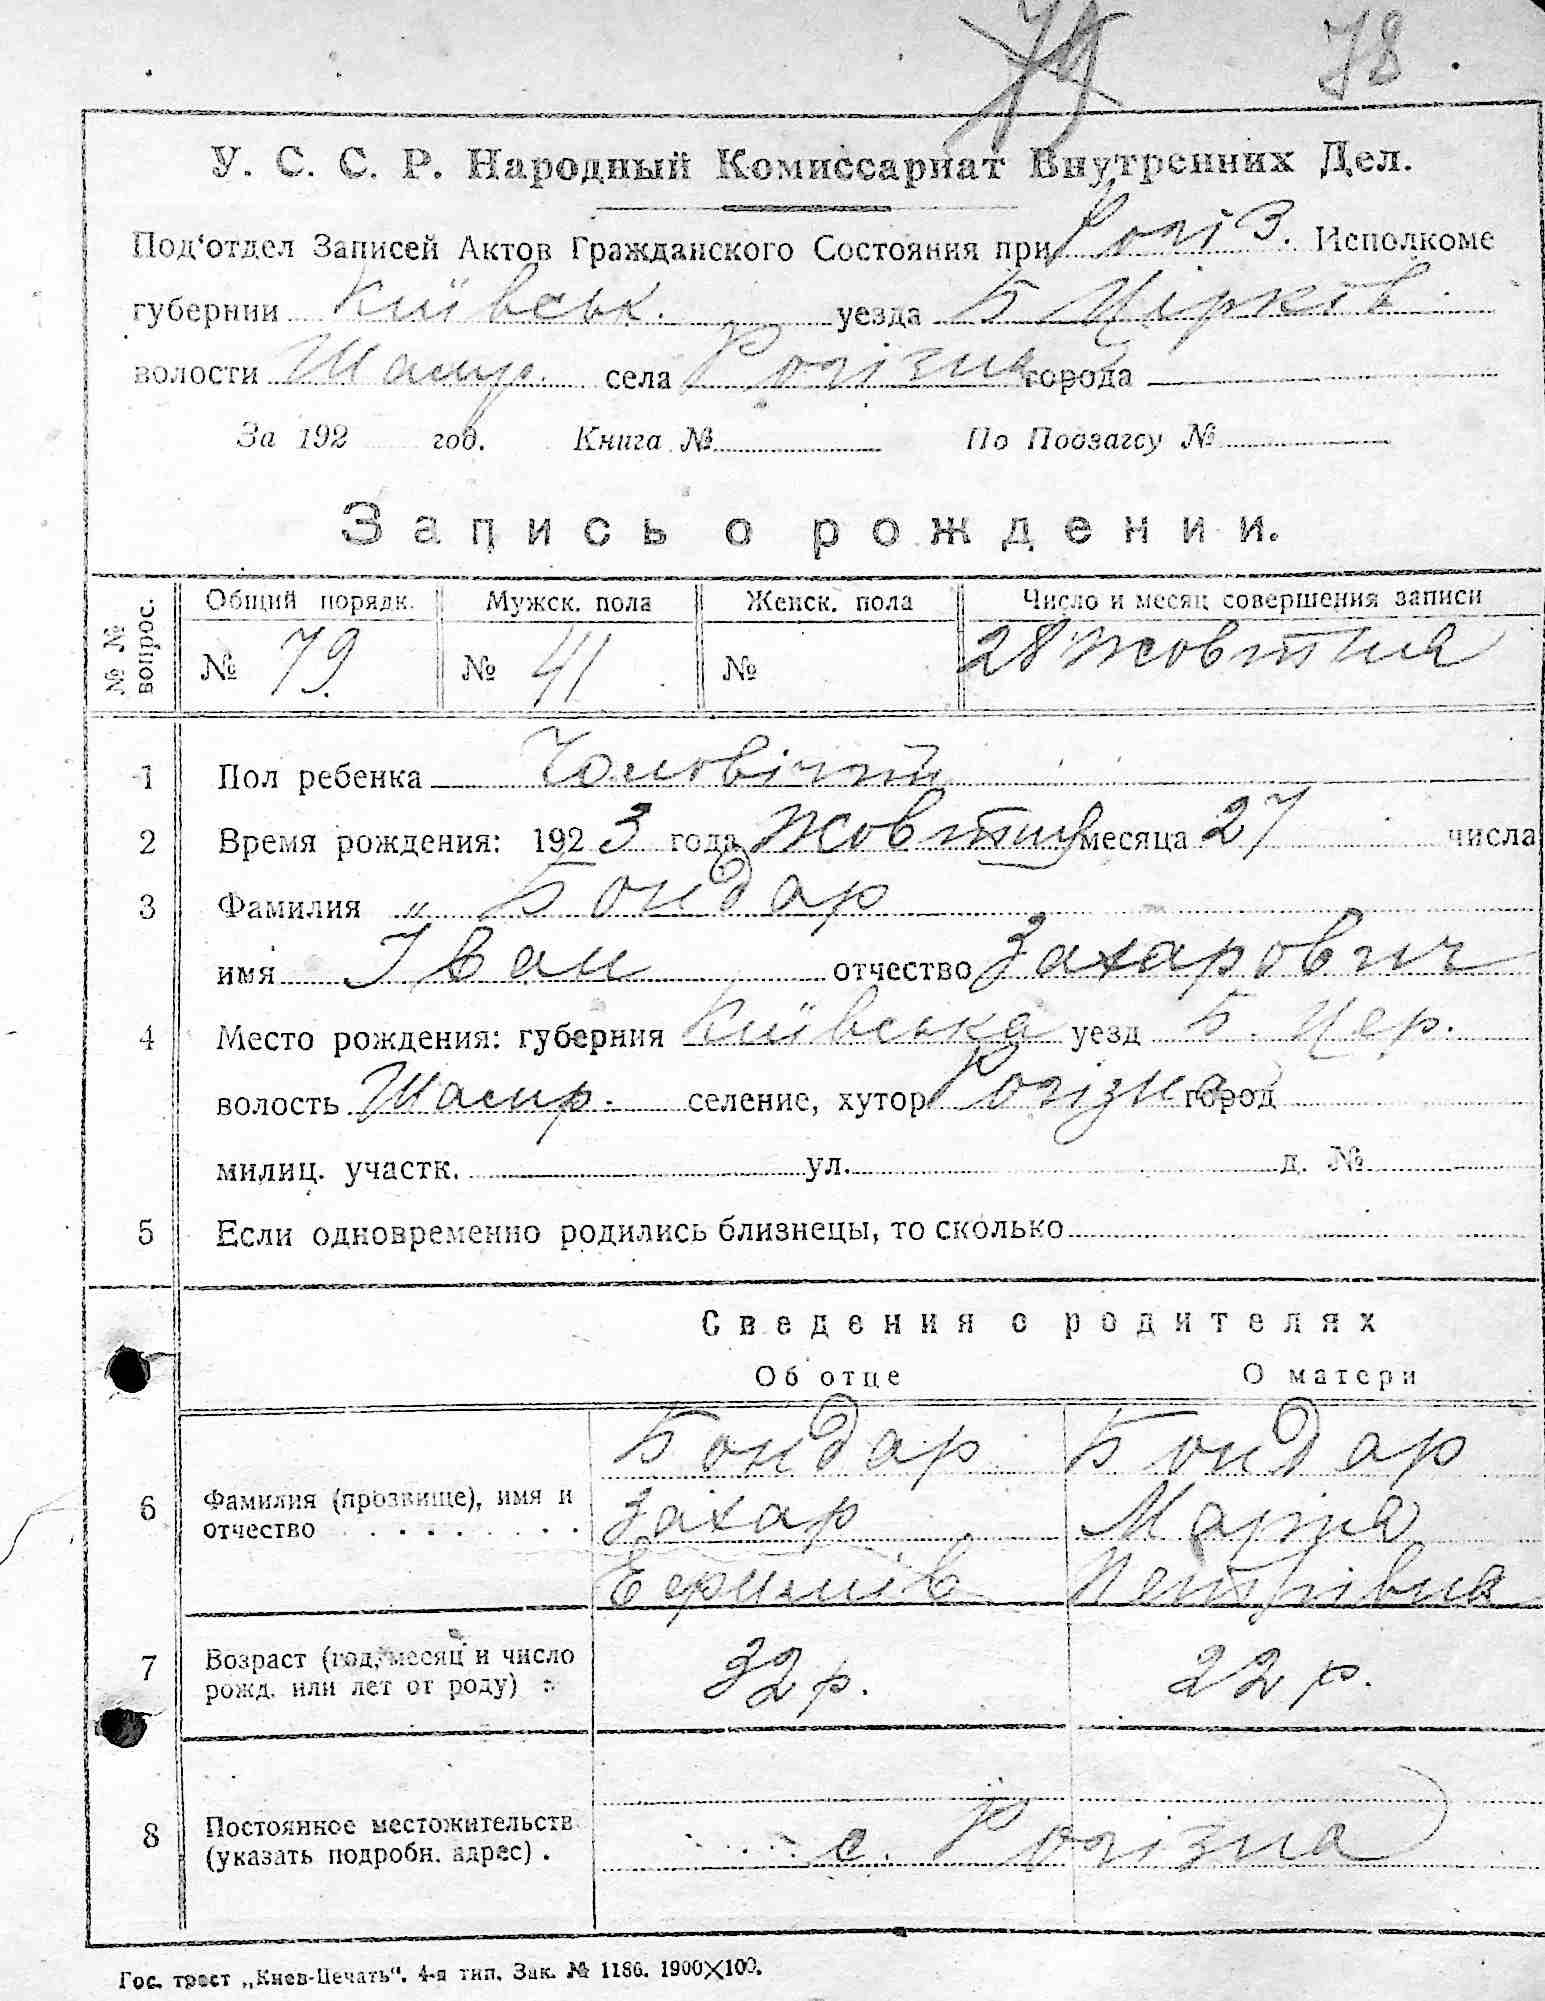 79 78
У. С. С. Р. Народный Комиссариат Внутренних Дел.
Под'отдел Записей Актов Гражданского Состояния при Рогіз. Исполкоме
губернии Київськ. уезда Б Цірків.
волости Шамр. села Рогізна города
За 192 год. Книга № По Подзагсу №
Запись о рождении.
№ № вопрос. Общий порядк. Мужск. пола Женск. пола Число и месяц совершения записи
№ 79. № 41 № 28 Жовтня
1 Пол ребенка Чоловічий
2 Время рождения: 1923 года Жовтня месяца 27 числа
3 Фамилия „ Бондар
имя Іван отчество Захарович
4 Место рождения: губерния Київська уезд Б. Цер.
волость Шамр. селение, хутор Рогізна город
милиц. участк. ул. д. №
5 Если одновременно родились близнецы, то сколько
Сведения о родителях
Об отце О матери
Бондар Бондар
6 Фамилия (прозвище), имя и Захар Марія
отчество Петрівна
7 Возраст (год, месяц и число 32 р. 22 р.
рожд. или лет от роду)
8 Постоянное местожительств
(указать подробн. адрес) . с. Рогізна
Гос. трест „Киев-Печать". 4-я тип. Зак. № 1186. 1900X100.